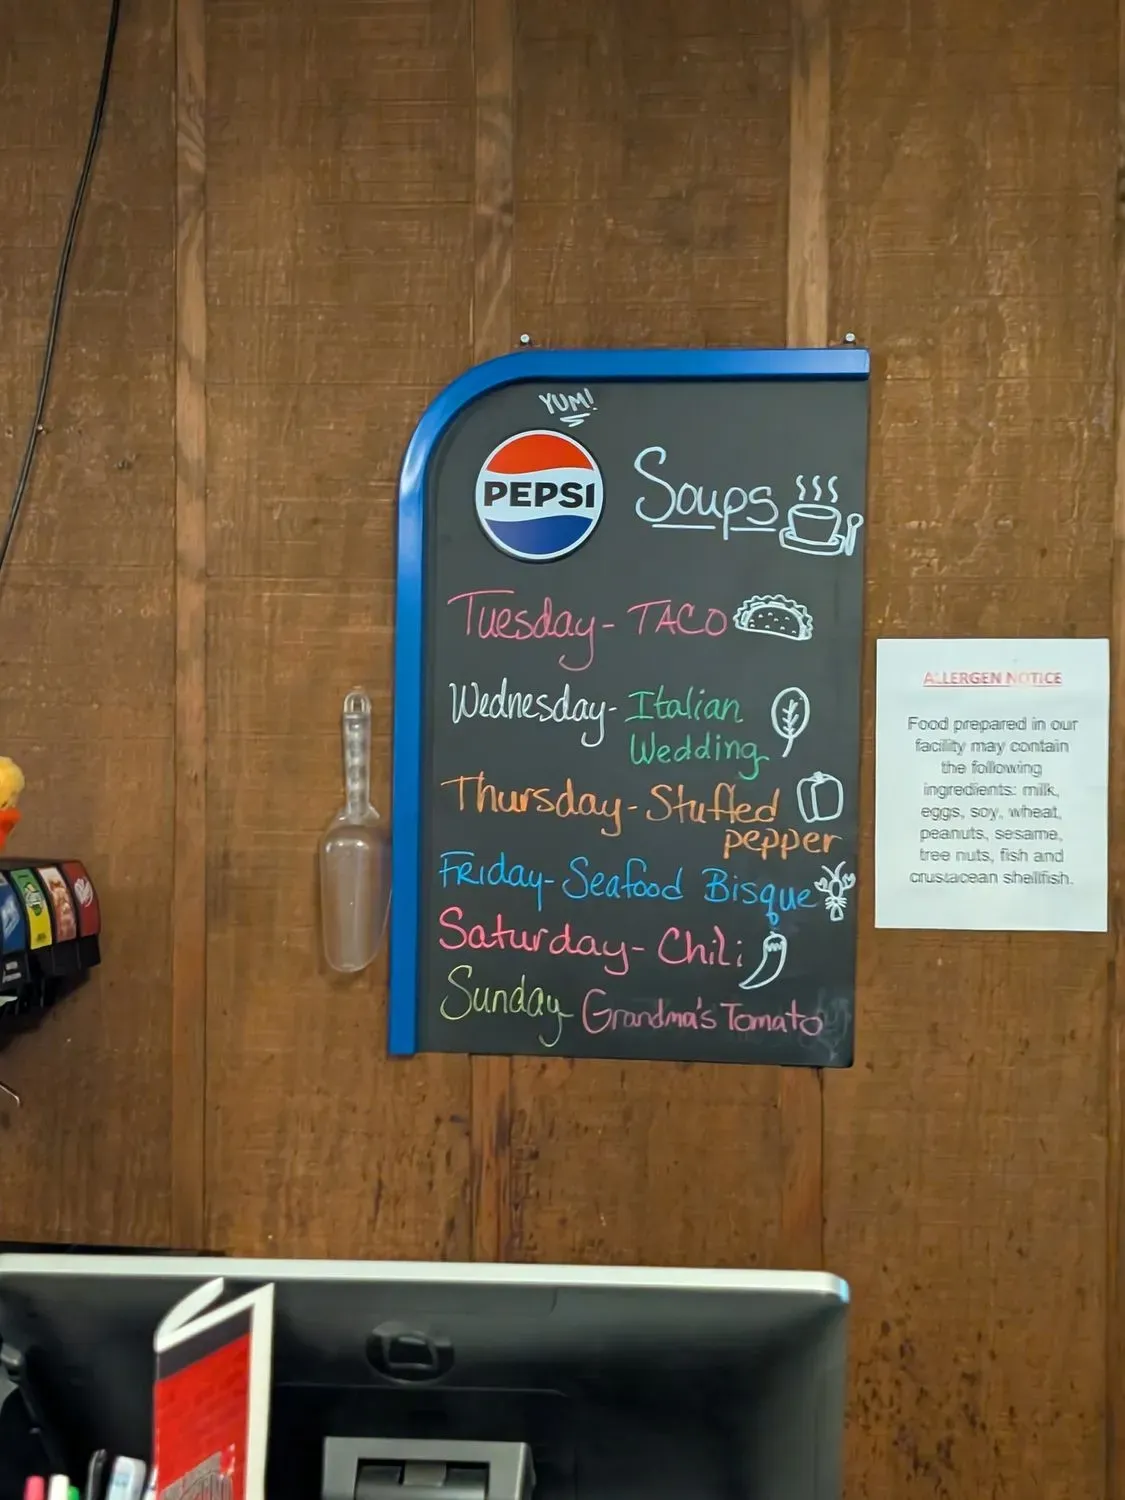 YUM!
PEPSI
Soups
Tuesday- TACO
Wednesday- Italian
Wedding
Thursday- Stuffed
pepper
Friday- Seafood Bisque
Saturday- Chili
Sunday- Grandma's Tomato
ALLERGEN NOTICE
Food prepared in our
facility may contain
the following
ingredients: milk,
eggs, soy, wheat,
peanuts, sesame,
tree nuts, fish and
crustacean shellfish.